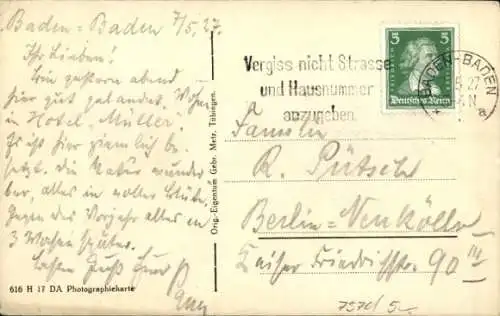 Baden-Baden 7/5.27.
Ihr Lieben!
Bin gestern abend
hier gut gelandet. Wohne
in Hotel „Müller“.
Es ist hier ziemlich be-
setzt. Die Natur wunder-
bar, alles in voller Blüte.
Gegen das Vorjahr alles in
3 Wochen später.
Besten Gruß Euer
616 H 17 DA Photographiekarte
Orig.-Eigentum Gebr. Metz, Tübingen.
Vergiss nicht Strasse
und Hausnummer
anzugeben
5 5
Deutsches Reich
BADEN-BADEN
5.27
N
a
Familie
R. Pütsch
Berlin-Neukölln
Kaiser Friedrichstr. 90 III